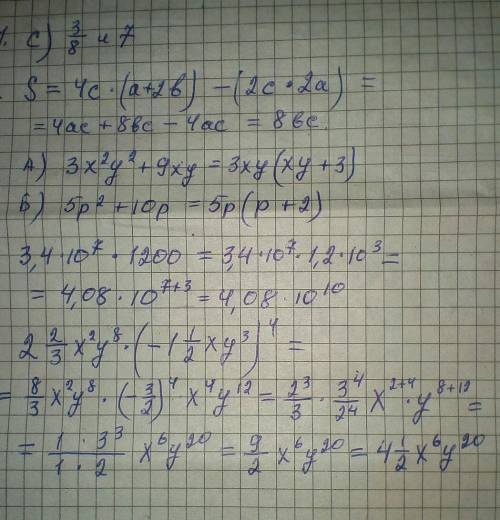 1. С) 3/8 и 7
S = 4c · (a+2b) − (2c · 2a) =
= 4ac + 8bc − 4ac = 8bc.
А) 3x²y² + 9xy = 3xy(xy + 3)
Б) 5p² + 10p = 5p(p + 2)
3,4 · 10⁷ · 1200 = 3,4 · 10⁷ · 1,2 · 10³ =
= 4,08 · 10⁷⁺³ = 4,08 · 10¹⁰
2 2/3 x²y⁸ · (−1 1/2 xy³)⁴ =
= 8/3 x²y⁸ · (−3/2)⁴ x⁴y¹² = 2³/3 · 3⁴/2⁴ x²⁺⁴ · y⁸⁺¹² =
= (1 · 3³)/(1 · 2) x⁶y²⁰ = 9/2 x⁶y²⁰ = 4 1/2 x⁶y²⁰